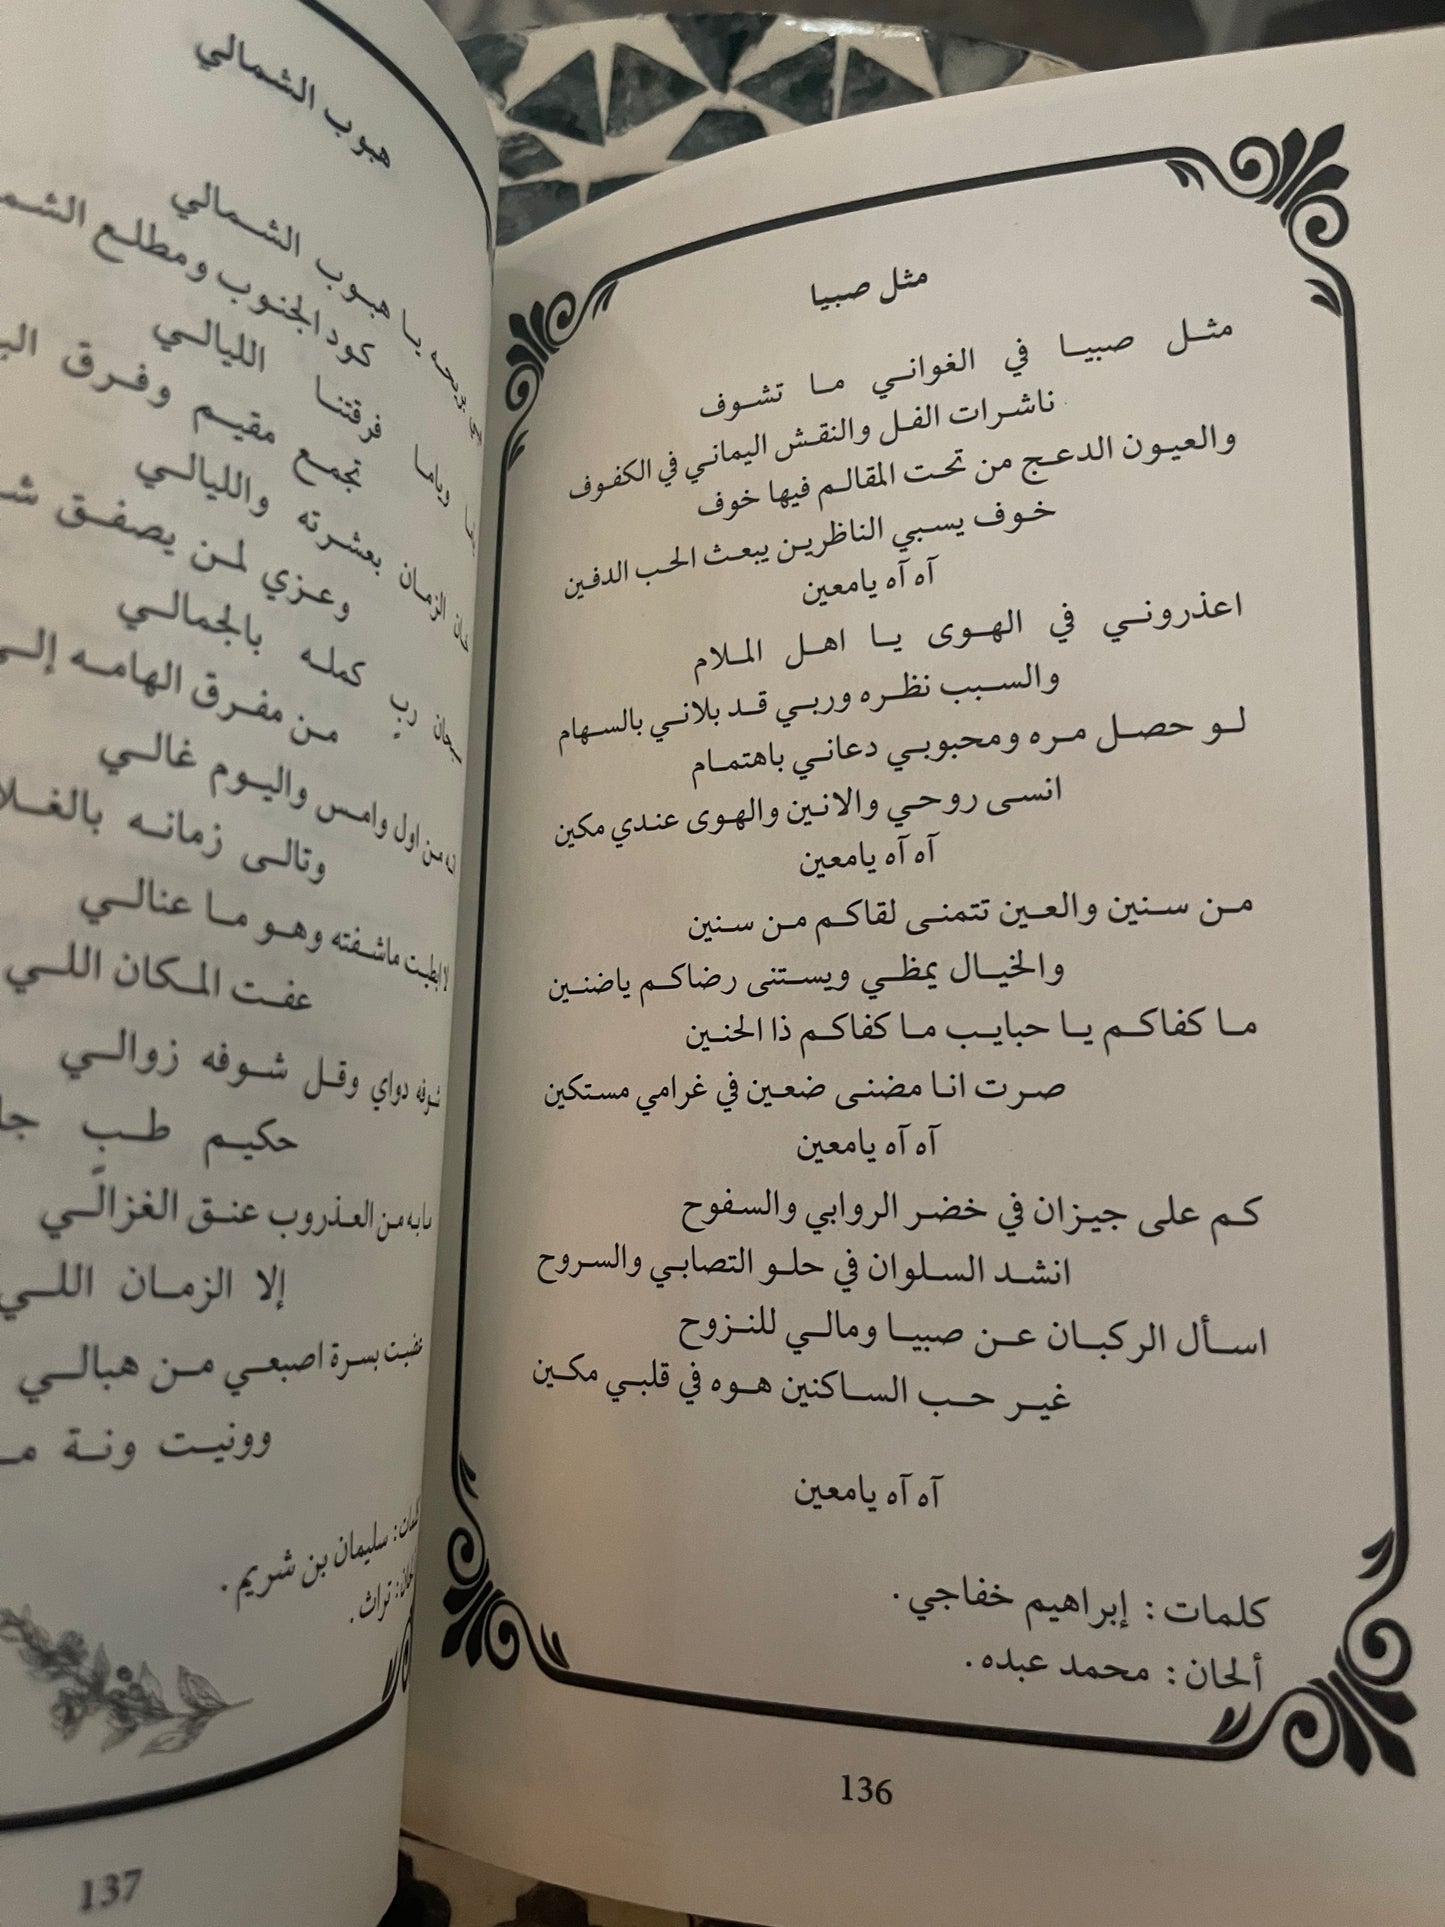 مثل صبيا
مثل صبيا في الغواني ما تشوف
ناشرات الفل والنقش اليماني في الكفوف
والعيون الدعج من تحت المقالم فيها خوف
خوف يسبي الناظرين يبعث الحب الدفين
آه آه يامعين
اعذروني في الهوى يا اهل الملام
والسبب نظره وربي قد بلاني بالسهام
لو حصل مره ومحبوبي دعاني باهتمام
انسى روحي والانين والهوى عندي مكين
آه آه يامعين
من سنين والعين تتمنى لقاكم من سنين
والخيال يمظي ويستنى رضاكم ياضنين
ما كفاكم يا حبايب ما كفاكم ذا الحنين
صرت انا مضنى ضعين في غرامي مستكين
آه آه يامعين
كم على جيزان في خضر الروابي والسفوح
انشد السلوان في حلو التصابي والسروح
اسأل الركبان عن صبيا ومالي للنزوح
غير حب الساكنين هوه في قلبي مكين
آه آه يامعين
كلمات : إبراهيم خفاجي .
ألحان : محمد عبده .
136
هبوب الشمالي
يا هبوب الشمالي
كود الجنوب ومطلع
وياما فرقتنا الليالي
تجمع مقيم وفرق
خان الزمان بعشرته والليالي
وعزي لمن يصفق
رب كمله بالجمالي
من مفرق الهامه إلى
من اول وامس واليوم غالي
وتالى زمانه
لا ابطيت ماشفته وهو ما عنالي
عفت المكان اللي
شوفه دواي وقل شوفه زوالي
حكيم طبٍ
مابه من العذروب عنق الغزالي
إلا الزمان اللي
عضيت بسرة اصبعي من هبالي
وونيت ونة
كلمات : سليمان بن شريم .
ألحان : تراث .
137